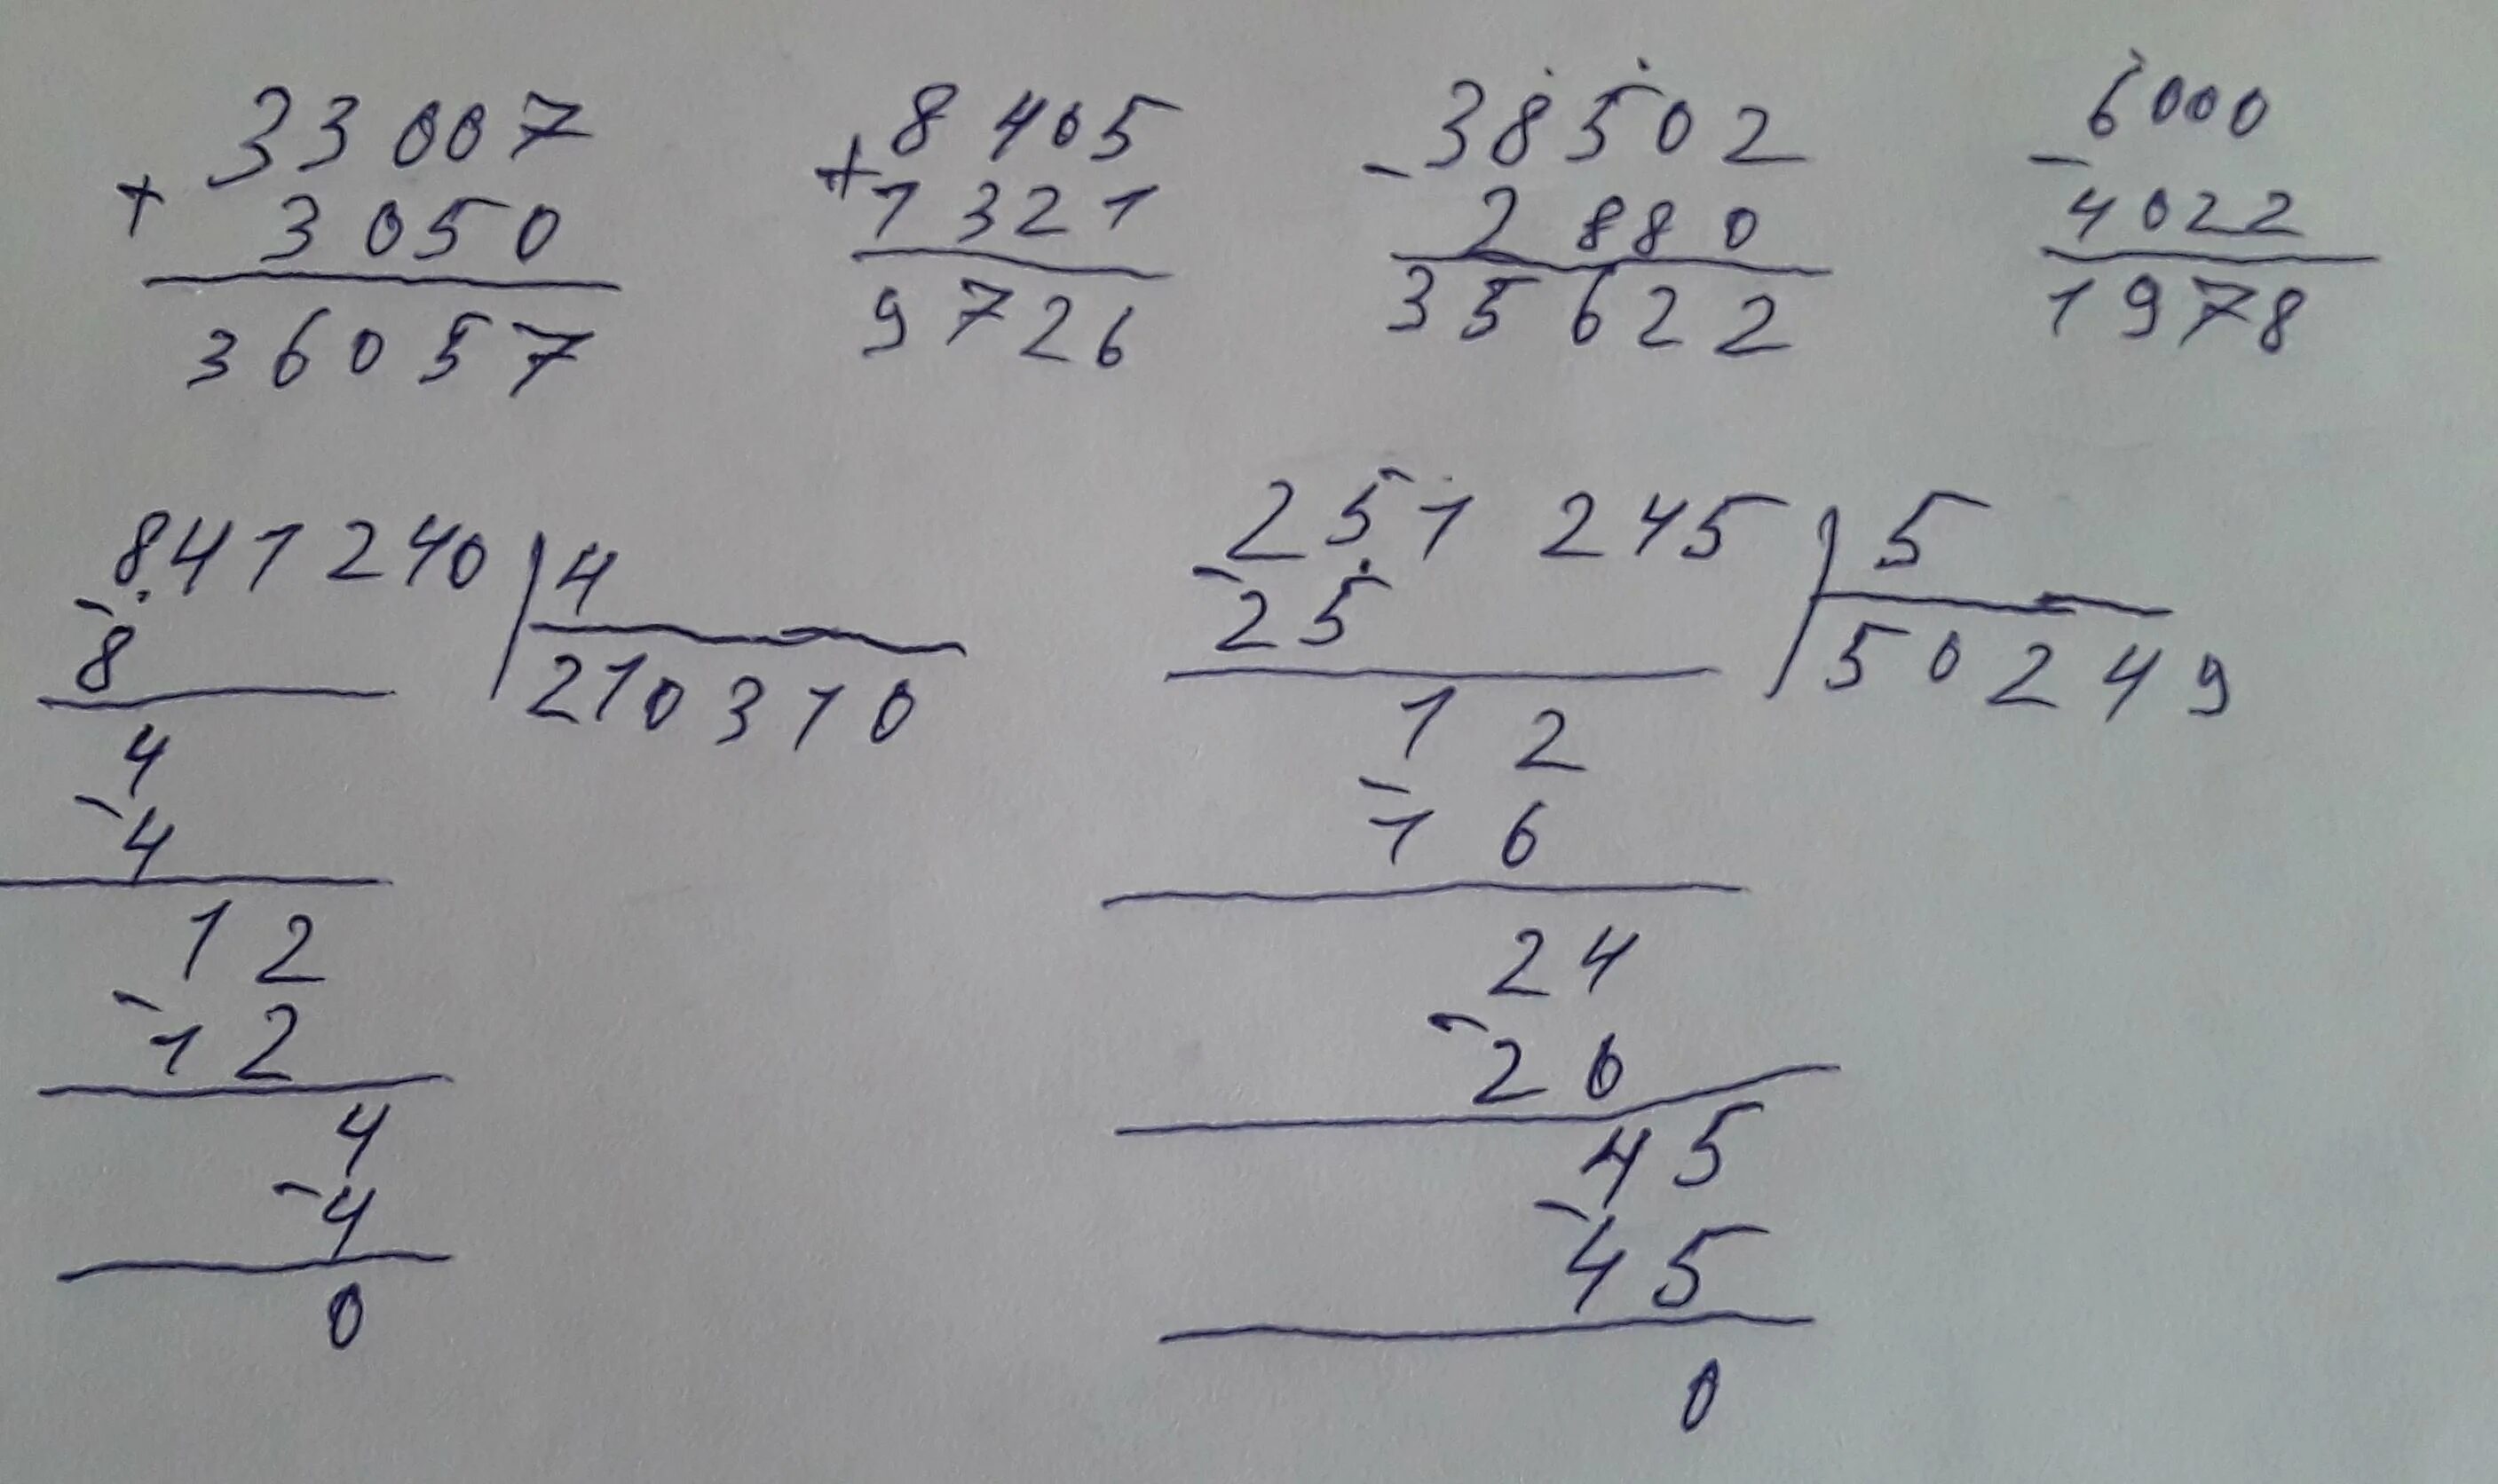 33007
+
3050
36057
8405
+
1321
9726
38502
-
2880
35622
6000
-
4022
1978
841240 | 4
-
8
210310
4
-
4
12
-
12
4
-
4
0
251 245 | 5
-
25
50249
12
-
16
24
-
26
45
-
45
0